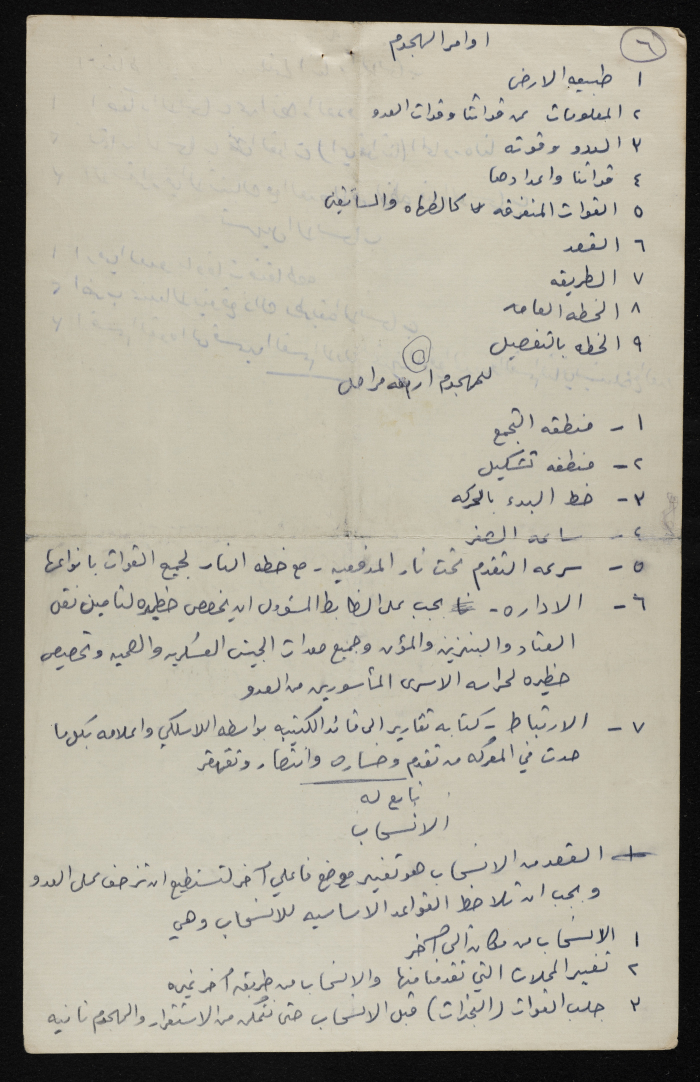 ٦
اوامر الهجوم
١ طبيعه الارض
٢ المعلومات عن قواتنا وقوات العدو
٣ العدو وقوته
٤ قواتنا واعدادها
٥ القوات المتفرقه كالطهاه والسائقين
٦ القصد
٧ الطريقه
٨ الخطه العامه
٩ الخطه بالتفصيل
٥
للهجوم اربعه مراحل
١ - منطقه التجمع
٢ - منطقه تشكيل
٣ - خط البدء بالحركه
٤ - ساعه الصفر
٥ - سرعه التقدم تحت نار المدفعيه - مع خطه النار لجميع القوات بانواعها
٦ - الاداره - يجب على الضابط المسؤول ان يخصص حظيره لتأمين نقل
العتاد والبنزين والمؤن وجميع معدات الجيش العسكريه والصحيه وتخصيص
حظيره لحراسه الاسرى المأسورين من العدو
٧ - الارتباط - كتابه تقارير الى قائد الكتيبه بواسطه اللاسلكي واعلامه بكل ما
حدث في المعركه من تقدم وخساره وانتصار وتقهقر
تابع له
الانسحاب
القصد من الانسحاب هو تغيير موضع فاعلي آخر لتستطيع ان تزحف على العدو
ويجب ان تلاحظ القواعد الاساسيه للانسحاب وهي
١ الانسحاب من مكان الى آخر
٢ تغيير المحلات التي تقدمنا منها والانسحاب من طريقه آخر غيره
٣ جلب القوات (النجدات) قبل الانسحاب حتى نتمكن من الاستقرار والهجوم ثانيه